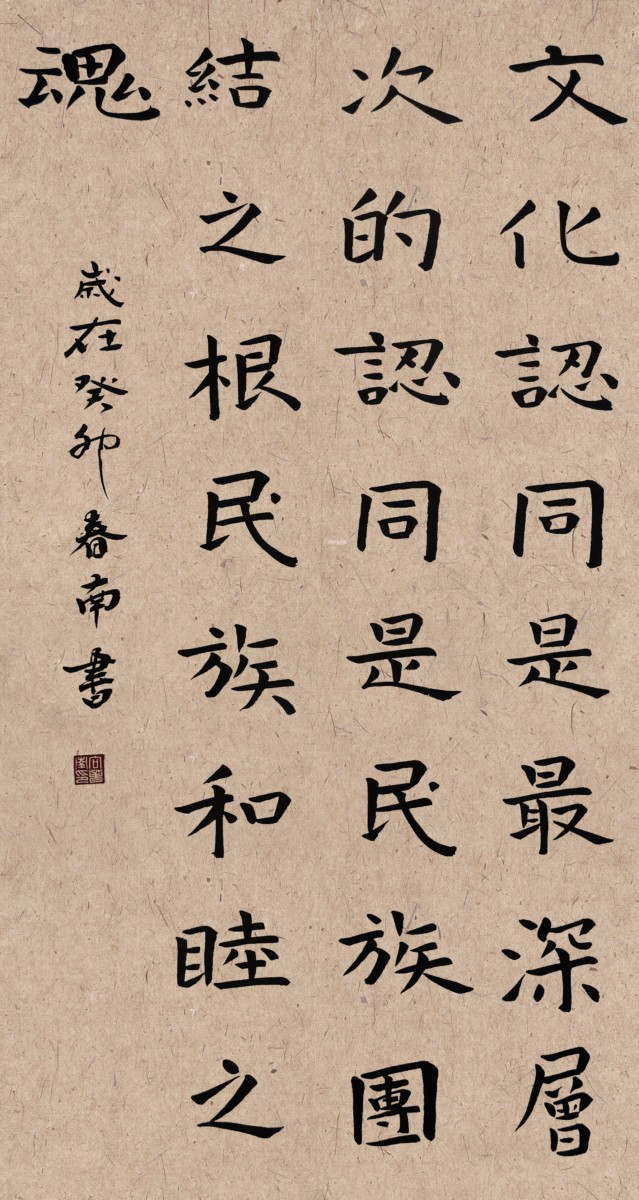 文化認同是最深層
次的認同是民族團
結之根民族和睦之
魂
歲在癸卯春南書